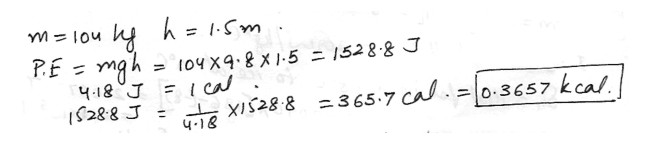 m = 104 kg h = 1.5 m .
P.E = mgh = 104 X 9.8 X 1.5 = 1528.8 J
4.18 J = 1 cal .
1528.8 J = 1/4.18 X 1528.8 = 365.7 cal . = 0.3657 kcal.